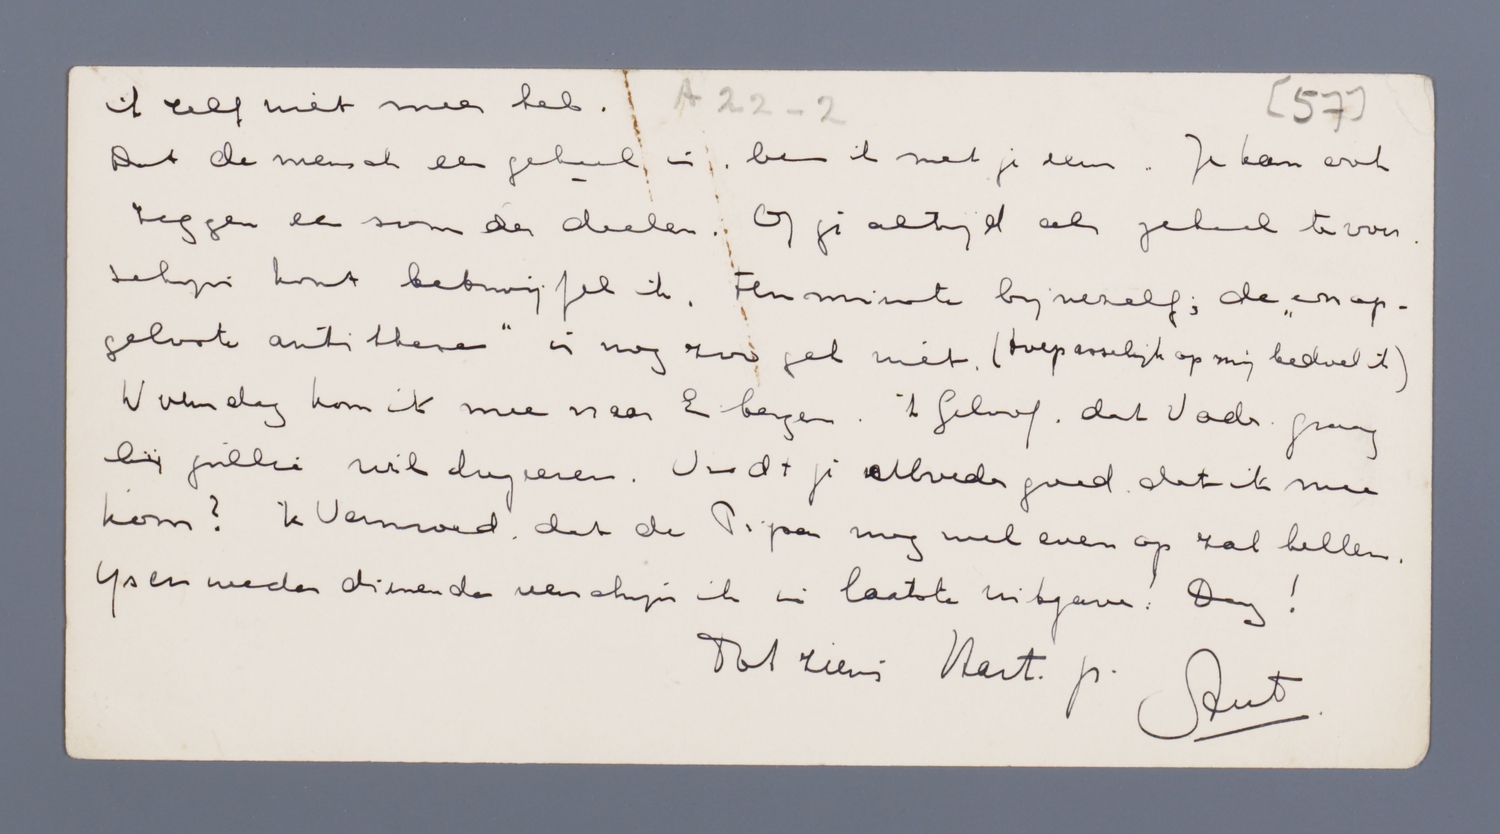 A 22-2 [57]
ik zelf niet meer heb.
Dat de mensch een geheel is, ben ik met je eens. Je kan ook
zeggen een som der deelen. Of jij altijd als geheel te voor
schijn komt betwijfel ik. Ten minste bij mezelf; de „onop-
geloste antithese" is nog zoo gek niet. (toepasselijk op mij bedoel ik)
Woensdag kom ik mee naar Ebergen. 'k Geloof, dat Vader graag
bij jullie wil dineren. Vindt je goed dat ik mee
kom? 'k Vermoed, dat de Pipa nog wel even op zal bellen.
IJs en weder dienende verschijn ik in laatste uitgave! Dag!
Tot ziens Hart. gr.
Stut